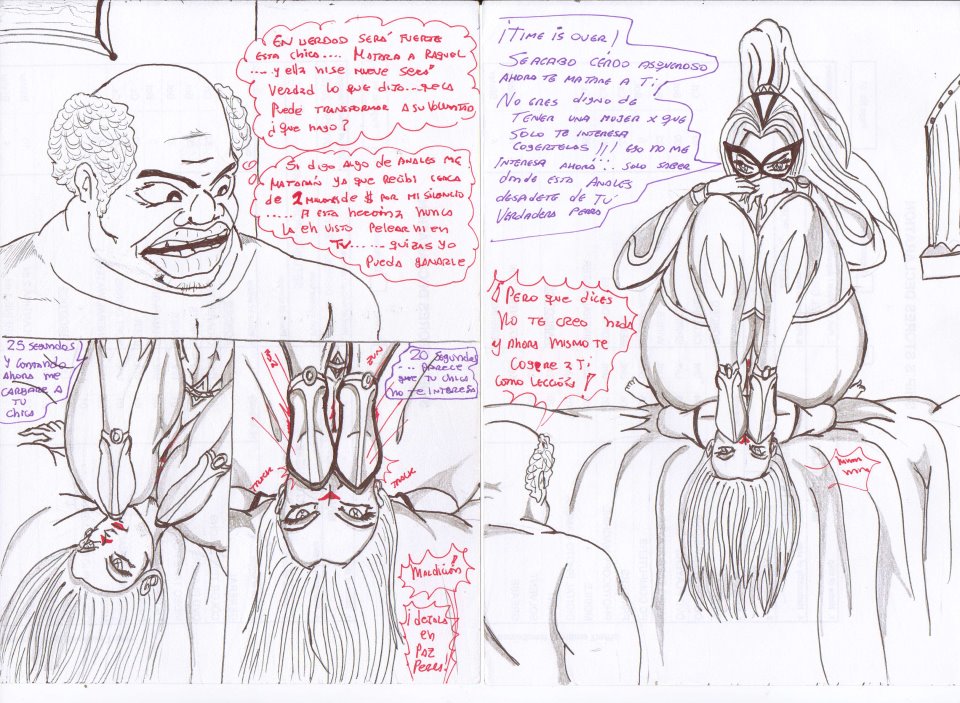 EN VERDAD SERÁ FUERTE
ESTA CHICA.... MATARA A RAQUEL
.... Y ELLA NISE MUEVE SERA
VERDAD LO QUE DIJO... QUE LA
PUEDE TRANSFORMAR A SU VOLUNTAD
¿QUE HAGO?
SI DIGO ALGO DE ANALES ME
MATARAN YA QUE RECIBI CERCA
DE 2 MILLONES DE $ POR MI SILENCIO
..... A ESTA HEROINA NUNCA
LA EH VISTO PELEAR NI EN
TV...... QUIZAS YO
PUEDA GANARLE
25 SEGUNDOS
Y CONTANDO
AHORA ME
CARGARE A
TU
CHICA
20 SEGUNDOS
... PARECE
QUE TU CHICA
NO TE INTERESA
ZUN
TRACK
TRACK
MALDICIÓN!
¡DEJALA
EN
PAZ
PERRA!
¡TIME IS OVER!
SE ACABO CERDO ASQUEROSO
AHORA TE MATARE A TI
NO ERES DIGNO DE
TENER UNA MUJER X QUE
SOLO TE INTERESA
COGERTELAS !!! ESO NO ME
INTERESA AHORA... SOLO SABER
DONDE ESTA ANALES
DESPIDETE DE TÚ
VERDADERA PERRA
¡PERO QUE DICES
NO TE CREO NADA
Y AHORA MISMO TE
COGERE A TI
COMO LECCIÓN!